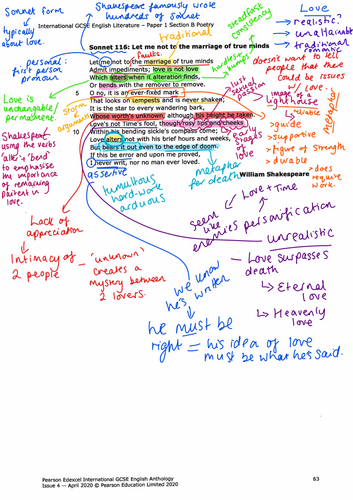 Shakespeare famously wrote
hundreds of sonnet
International GCSE English Literature – Paper 1 Section B Poetry
Sonnet form
typically
about love.
traditional
steadfast
consistency
Love
→ realistic?
→ unattainable
→ traditional
romantic
personal:
first person
pronoun
Sonnet 116: Let me not to the marriage of true minds
faults.
Let me not to the marriage of true minds
Admit impediments; love is not love
Which alters when it alteration finds,
Or bends with the remover to remove.
5 O no, it is an ever-fixed mark
That looks on tempests and is never shaken;
It is the star to every wandering bark,
Whose worth's unknown, although his height be taken.
Love's not Time's fool, though rosy lips and cheeks
10 Within his bending sickle's compass come;
Love alters not with his brief hours and weeks,
But bears it out even to the edge of doom.
If this be error and upon me proved,
I never writ, nor no man ever loved.
William Shakespeare
hurdles
bumps
doesn't want to tell
people that there
could be issues
w/ love.
image of a
lighthouse
metaphor
→ reliable
→ guide
→ supportive
→ figure of strength
→ durable
→ does
require
work.
Love is
unchangable,
permanent.
storm
argument
just
sexual
passion
early
stages
of
love
Shakespeare
using the verbs
'alter' + 'bend'
to emphasise
the importance
of remaining
patient in
love.
assertive
metaphor
for death
tumultous
hard-work
arduous
Love + Time
personification
seem
like
enemies
Lack of
appreciation
Intimacy of
2 people
'unknown'
creates a
mystery between
2 lovers.
unrealistic
- Love surpasses
death
→ Eternal
love
→ Heavenly
love
we know
he's written
he must be
right = his idea of love
must be what he said.
Pearson Edexcel International GCSE English Anthology
Issue 4 – April 2020 © Pearson Education Limited 2020
63